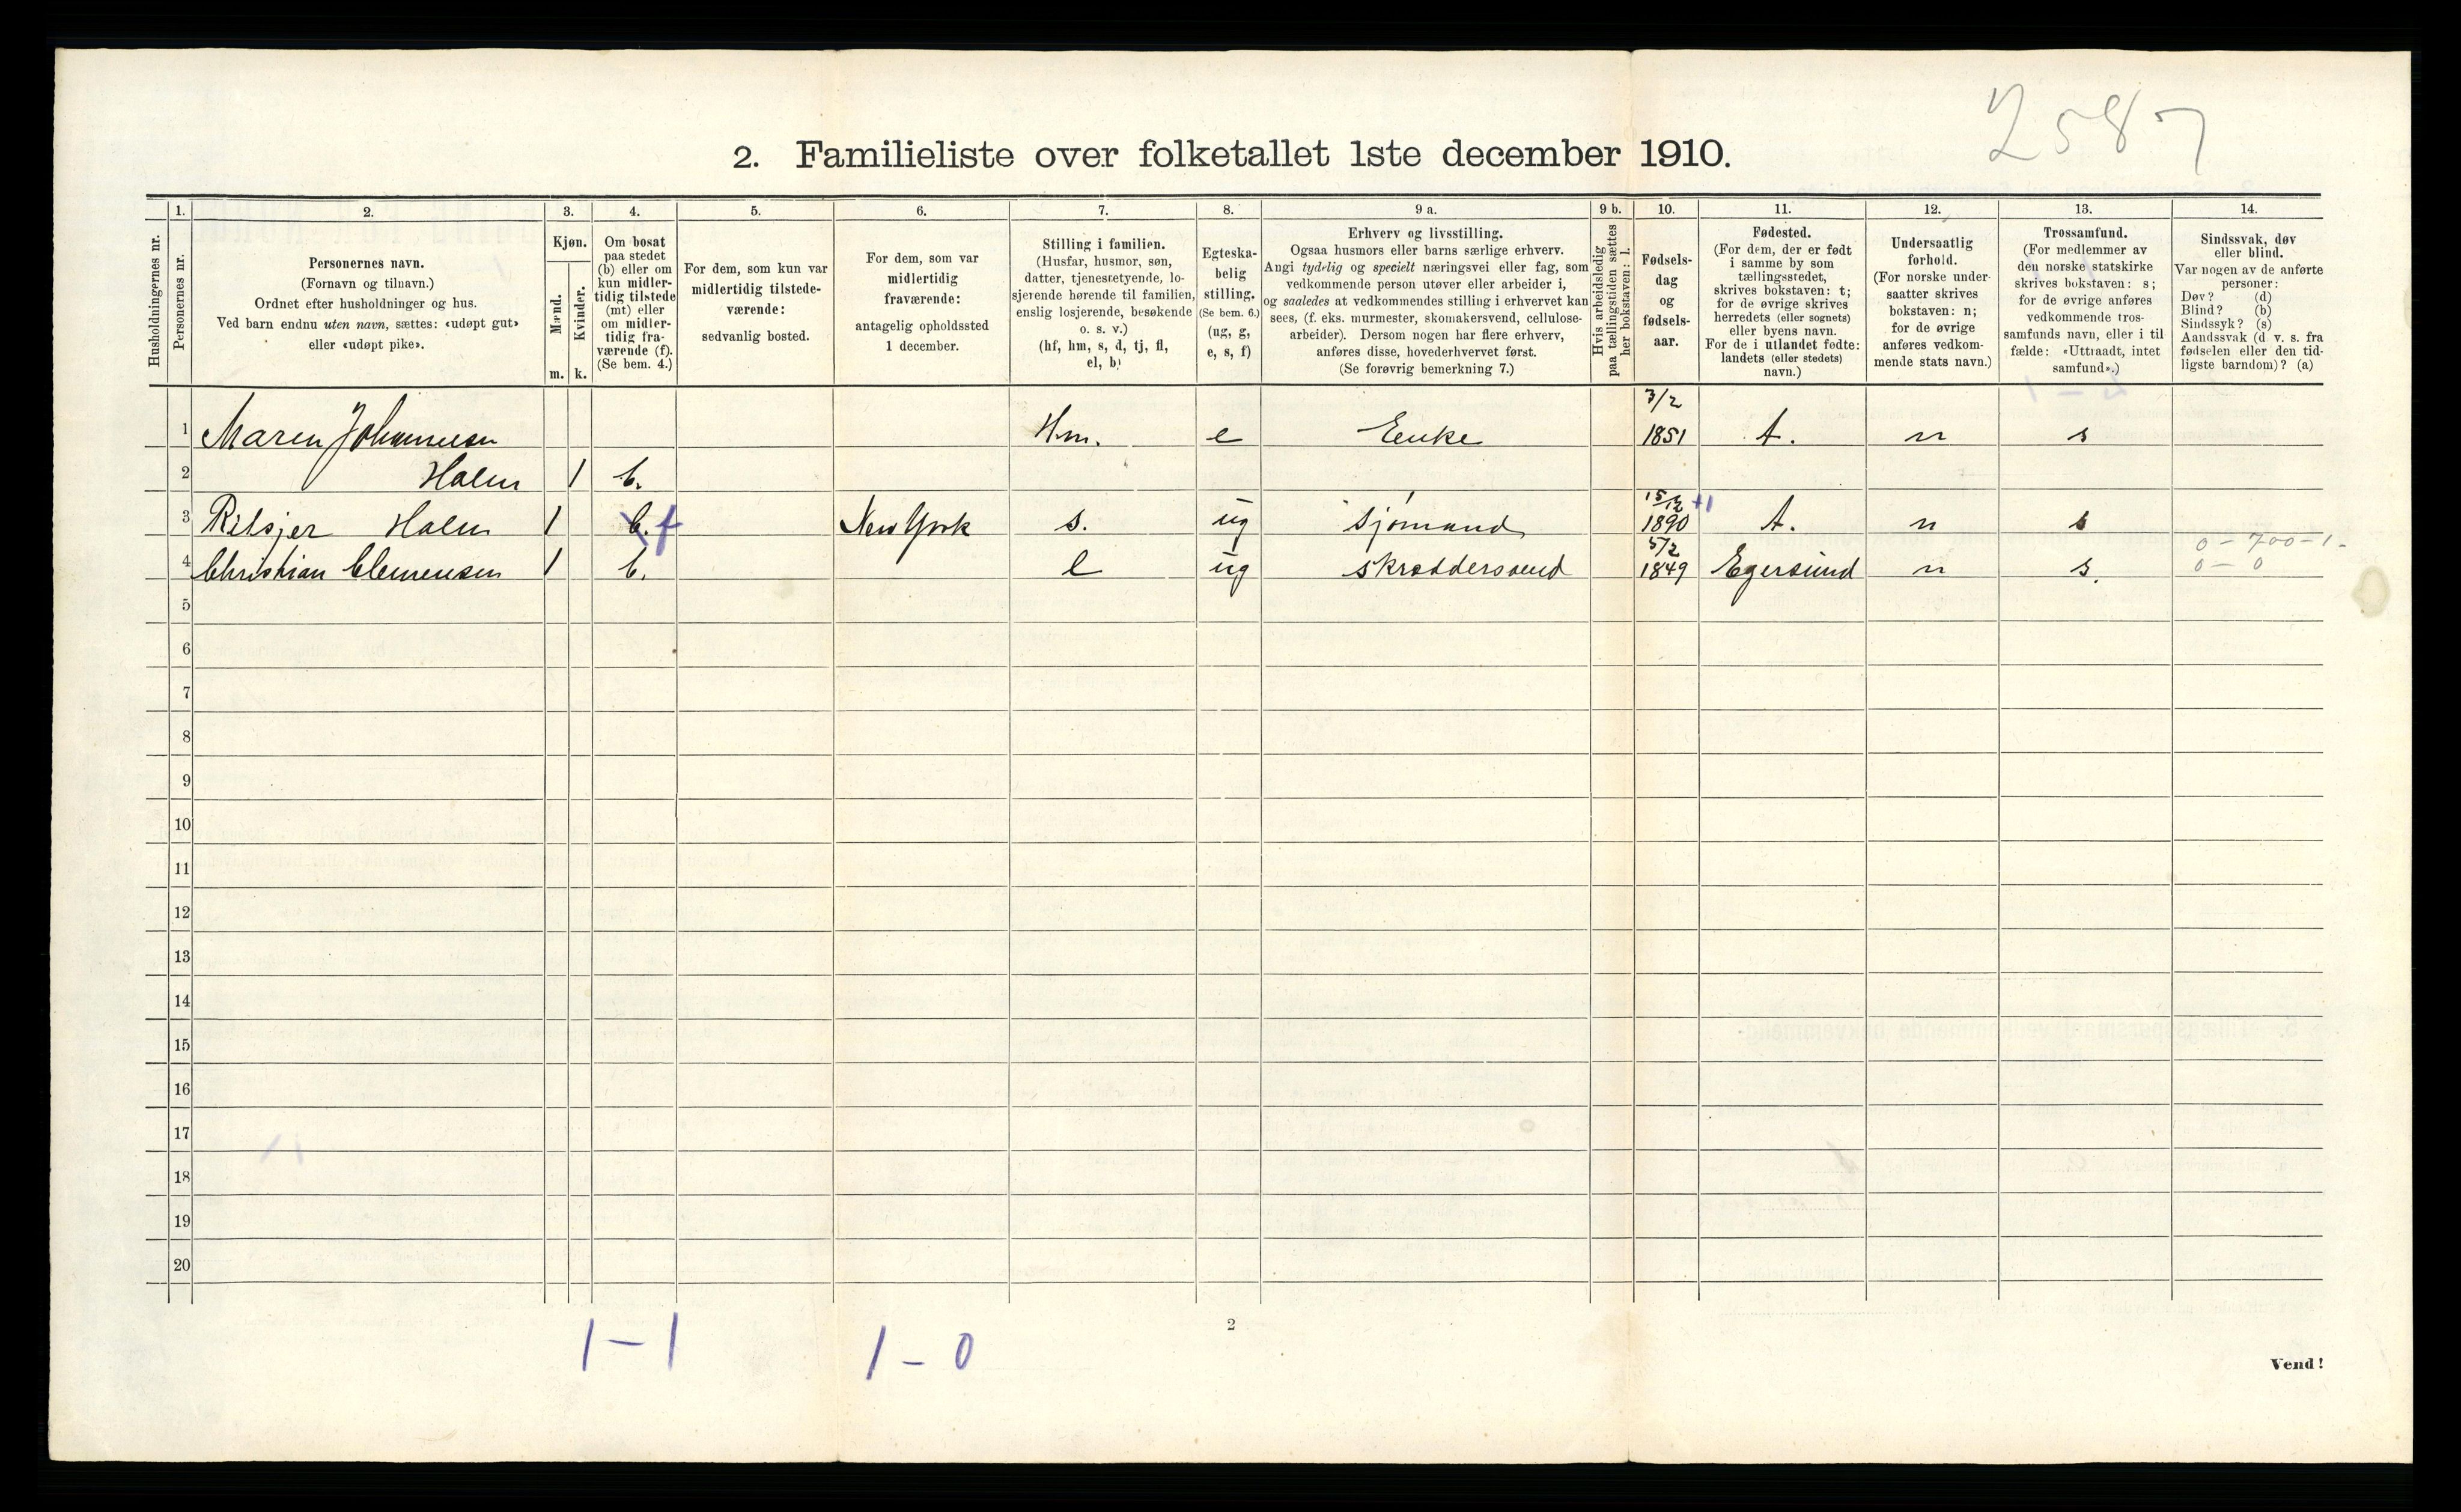 2587
2. Familieliste over folketallet 1ste december 1910.
1. 2. 3. 4. 5. 6. 7. 8. 9 a. 9 b. 10. 11. 12. 13. 14.
Husholdningernes nr.
Personernes nr.
Personernes navn.
(Fornavn og tilnavn.)
Ordnet efter husholdninger og hus.
Ved barn endnu uten navn, sættes: «udøpt gut»
eller «udøpt pike».
Kjøn.
Mænd.
Kvinder.
m. k.
Om bosat
paa stedet
(b) eller om
kun midler-
tidig tilstede
(mt) eller
om midler-
tidig fra-
værende (f).
(Se bem. 4.)
For dem, som kun var
midlertidig tilstede-
værende:
sedvanlig bosted.
For dem, som var
midlertidig
fraværende:
antagelig opholdssted
1 december.
Stilling i familien.
(Husfar, husmor, søn,
datter, tjenestetyende, lo-
sjerende hørende til familien,
enslig losjerende, besøkende
o. s. v.)
(hf, hm, s, d, tj, fl,
el, b)
Egteska-
belig
stilling.
(Se bem. 6.)
(ug, g,
e, s, f)
Erhverv og livsstilling.
Ogsaa husmors eller barns særlige erhverv.
Angi tydelig og specielt næringsvei eller fag, som
vedkommende person utøver eller arbeider i,
og saaledes at vedkommendes stilling i erhvervet kan
sees, (f. eks. murmester, skomakersvend, cellulose-
arbeider). Dersom nogen har flere erhverv,
anføres disse, hovederhvervet først.
(Se forøvrig bemerkning 7.)
Hvis arbeidsledig
paa tællingstiden sættes
her bokstaven: l.
Fødsels-
dag
og
fødsels-
aar.
Fødested.
(For dem, der er født
i samme by som
tællingsstedet,
skrives bokstaven: t;
for de øvrige skrives
herredets (eller sognets)
eller byens navn.
For de i utlandet fødte:
landets (eller stedets)
navn.)
Undersaatlig
forhold.
(For norske under-
saatter skrives
bokstaven: n;
for de øvrige
anføres vedkom-
mende stats navn.)
Trossamfund.
(For medlemmer av
den norske statskirke
skrives bokstaven: s;
for de øvrige anføres
vedkommende tros-
samfunds navn, eller i til
fælde: «Uttraadt, intet
samfund».)
Sindssvak, døv
eller blind.
Var nogen av de anførte
personer:
Døv? (d)
Blind? (b)
Sindssyk? (s)
Aandssvak (d v. s. fra
fødselen eller den tid-
ligste barndom)? (a)
3/2
1 Maren Johannesen Hm. e Enke 1851 t. n s
2 Holm 1 b.
15/12 +1
3 Holm 1 b. f New York s. ug sjømand 1890 t. n s
5/2 0 - 700 - 1 -
4 Christian Clemensen 1 b. l ug skræddersvend 1849 Egersund n s. 0 - 0
5
6
7
8
9
10
11
12
13
14
15
16
17
18
19
20
1 - 1 1 - 0
2
Vend!